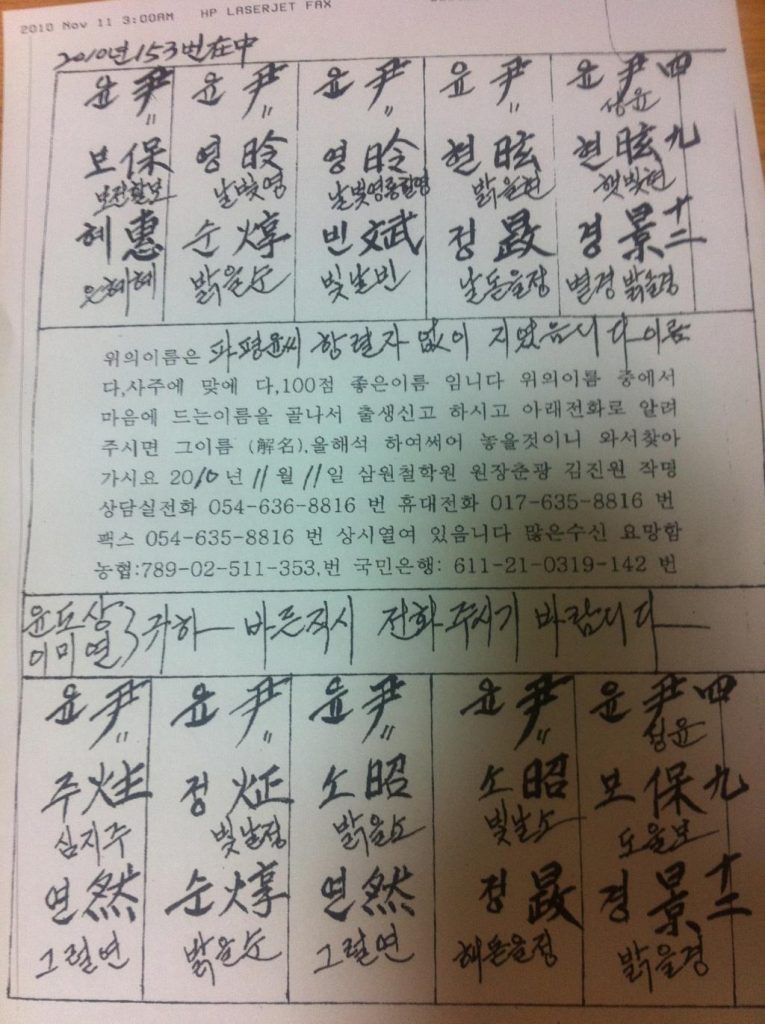 2010 Nov 11 3:00AM HP LASERJET FAX
2010년 153번 在中
윤 尹 윤 尹 윤 尹 윤 尹 윤 尹 四
〃 〃 〃 〃 성윤
보 保 영 昤 영 昤 현 昡 현 昡 九
보전할보 날빛영 날빛영 밝을현 햇빛현
혜 惠 순 焞 빈 斌 정 晸 경 景 十二
은혜혜 밝을순 빛날빈 날돋을정 별경 밝을경
위의이름은 파평윤씨 항렬자 없이 지었읍니다 이름
다,사주에 맞에 다,100점 좋은이름 임니다 위의이름 중에서
마음에 드는이름을 골나서 출생신고 하시고 아래전화로 알려
주시면 그이름 (解名),올해석 하여써어 놓을것이니 와서찾아
가시요 2010년 11월 11일 삼원철학원 원장춘광 김진원 작명
상담실전화 054-636-8816 번 휴대전화 017-635-8816 번
팩스 054-635-8816 번 상시열여 있음니다 많은수신 요망함
농협:789-02-511-353,번 국민은행: 611-21-0319-142 번
윤도상
이미열 귀하 바른즉시 전화주시기 바람니다
윤 尹 윤 尹 윤 尹 윤 尹 윤 尹 四
〃 〃 〃 〃 성윤
주 炷 정 炡 소 昭 소 昭 보 保 九
심지주 빛날정 밝을소 빛날소 도울보
연 然 순 焞 연 然 정 晸 경 景 十二
그럴연 밝을순 그럴연 해돋을정 밝을경